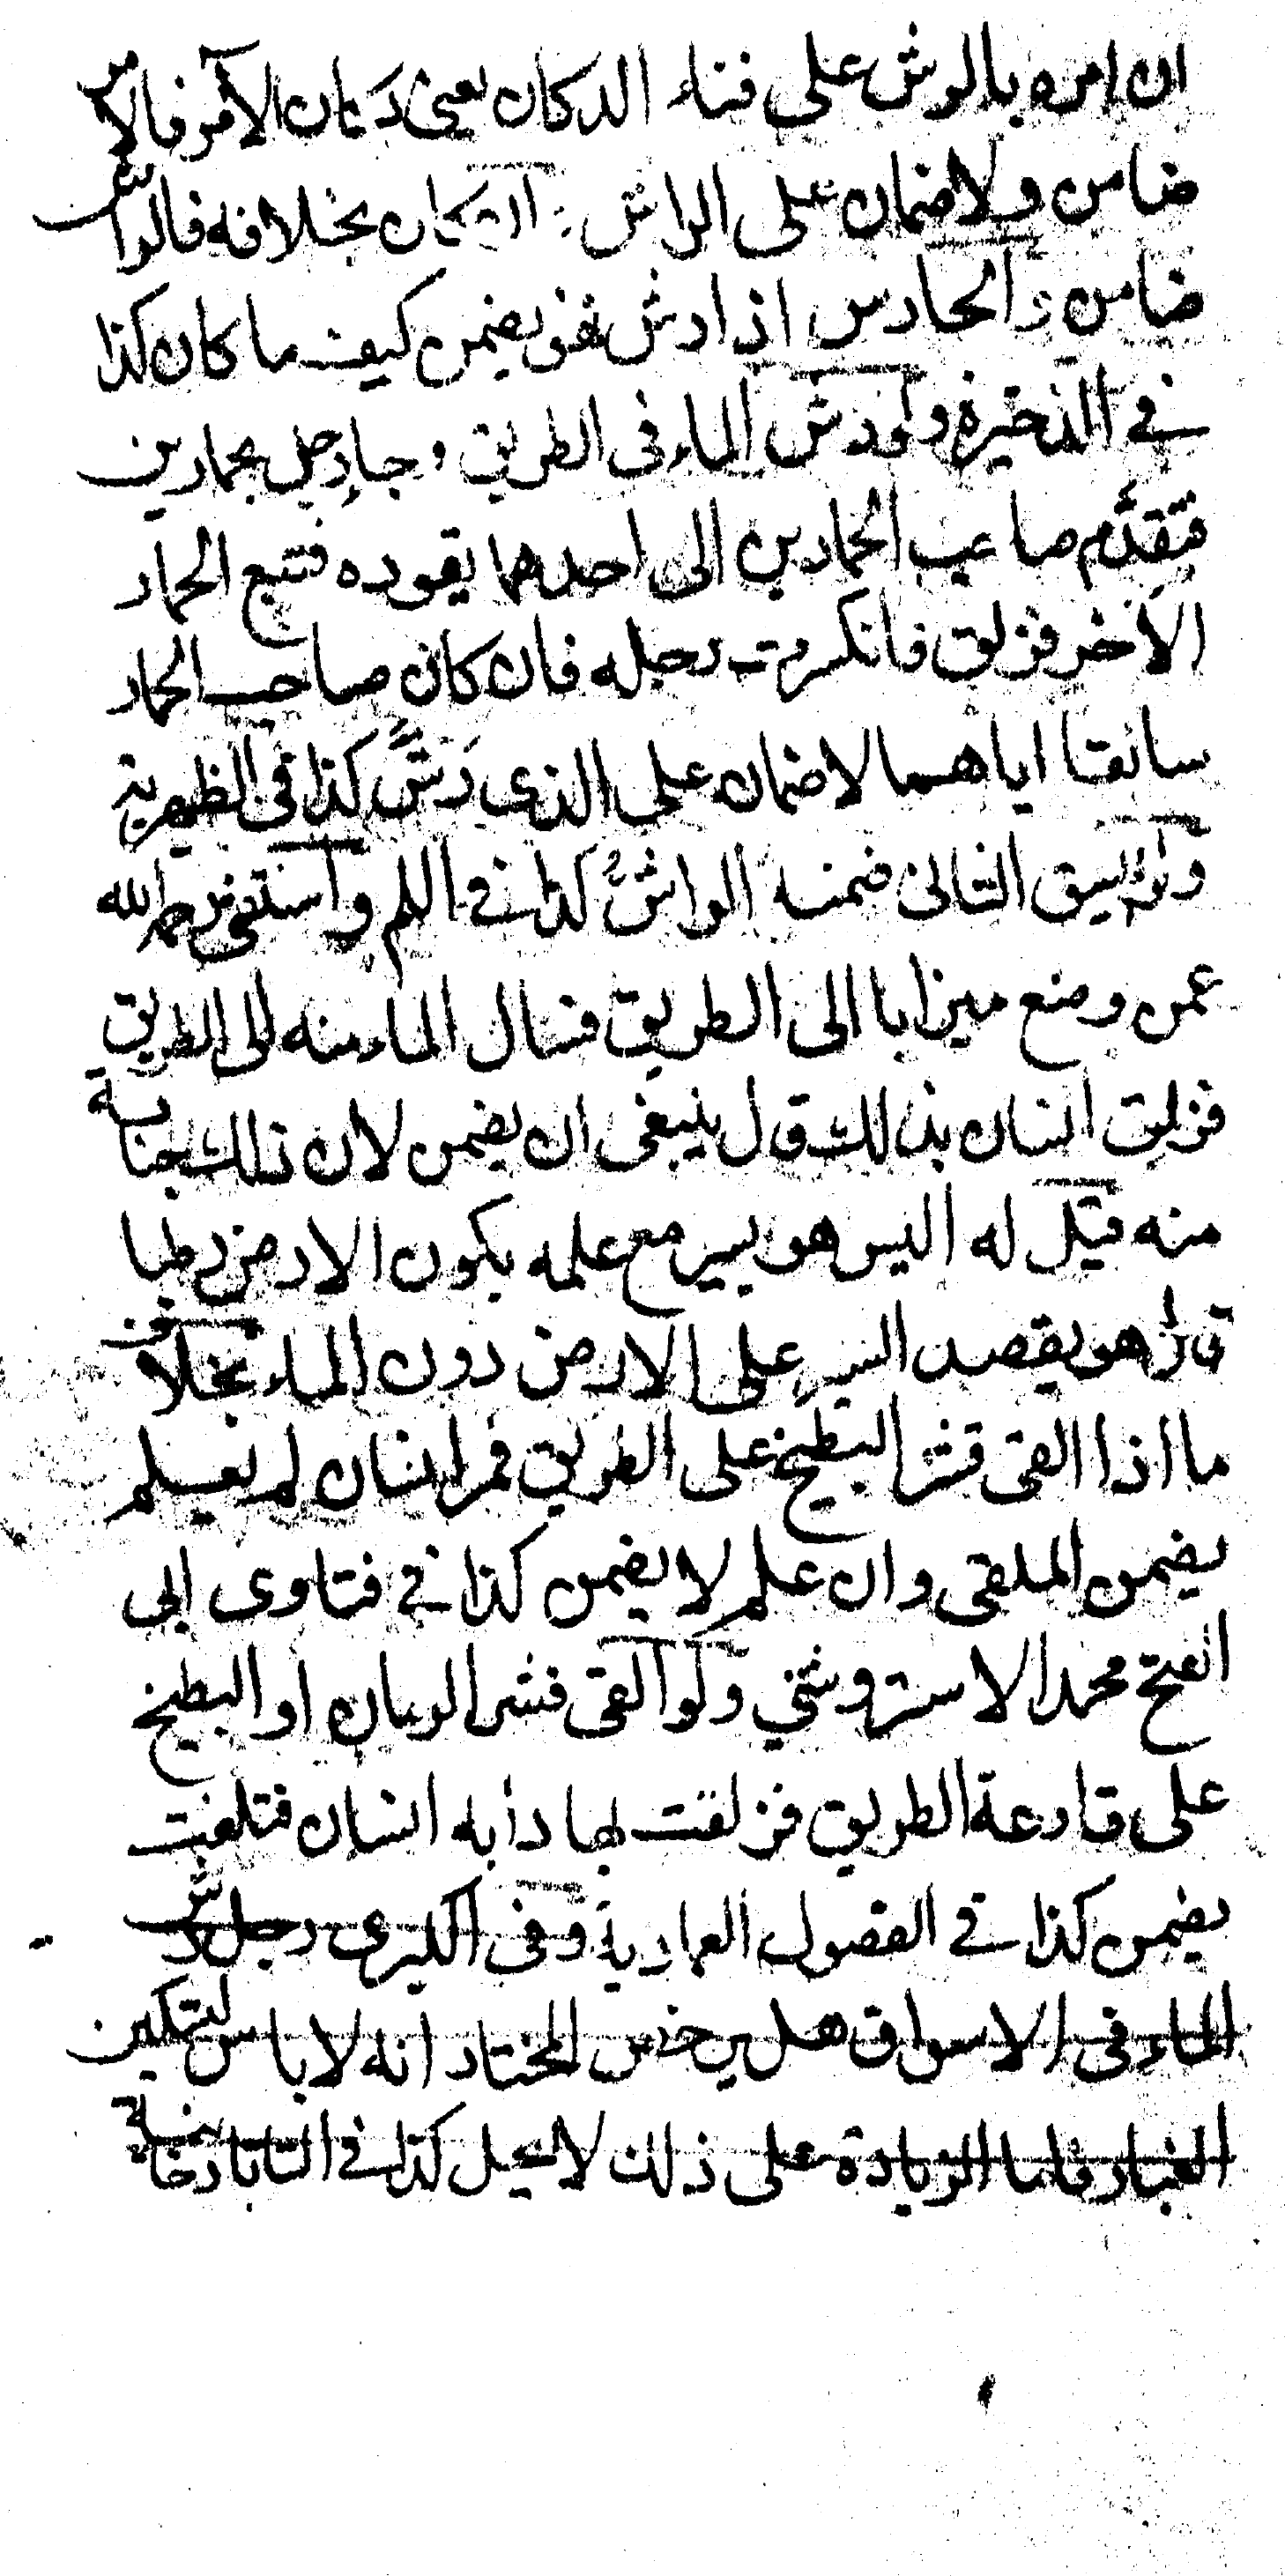 ان امره بالرش على فناء الدكان يعنى دكان الآمر فالآمر
ضامن ولا ضمان على الراش كان بخلافه فالراش
ضامن والحارس اذا رش يضمن كيف ما كان كذا
في الذخيرة ولو رش الماء في الطريق وجا رجل بحمارين
فتقدم صاحب الحمارين الى احدهما يقوده فتبع الحمار
الآخر فزلق فانكسرت رجله فان كان صاحب الحمار
سائقا اياهما لا ضمان على الذى رَشَّ كذا في الظهيرية
الثانى ضمنه الراش كذا في واستفتى رحمه الله
عمن وضع ميزابا الى الطريق فسال الماء منه الى الطريق
فزلق انسان بذلك قال ينبغى ان يضمن لان ذلك جناية
منه قيل له اليس هو يسير مع علمه بكون الارض رطبا
قال هو يقصد السير على الارض دون الماء بخلاف
ما اذا القى قشر البطيخ على الطريق فمر انسان لم يعلم
يضمن الملقى وان علم لا يضمن كذا في فتاوى ابى
الفتح محمد الاستروشنى ولو القى قشر الرمان او البطيخ
على قارعة الطريق فزلقت بها دابه انسان فتلفت
يضمن كذا في الفصول العمادية وفى الكبرى رجل رش
الماء في الاسواق هل يرخص المختار انه لا باس لتسكين
الغبار فاما الزيادة على ذلك لا يحل كذا في التاتارخانية